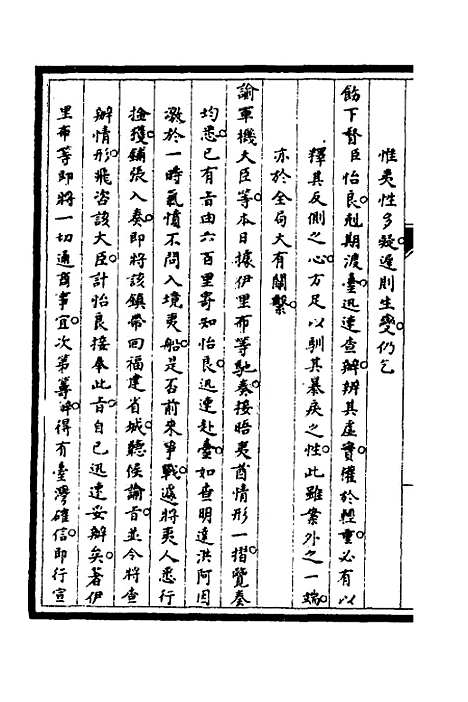 惟夷性多疑遲則生變仍乞
飭下督臣怡良剋期渡臺迅速查辦辨其虛實權於輕重必有以
釋其反側之心方足以馴其暴戾之性此雖案外之一端
亦於全局大有關繫
諭軍機大臣等本日據伊里布等馳奏接晤夷酋情形一摺覽奏
均悉已有旨由六百里寄知怡良迅速赴臺如查明達洪阿因
激於一時氣憤不問入境夷船是否前來爭戰遽將夷人悉行
擒獲鋪張入奏即將該鎮帶回福建省城聽候諭旨並令將查
辦情形飛咨該大臣計怡良接奉此旨自已迅速妥辦矣著伊
里布等即將一切通商事宜次第籌辦得有臺灣確信即行宣